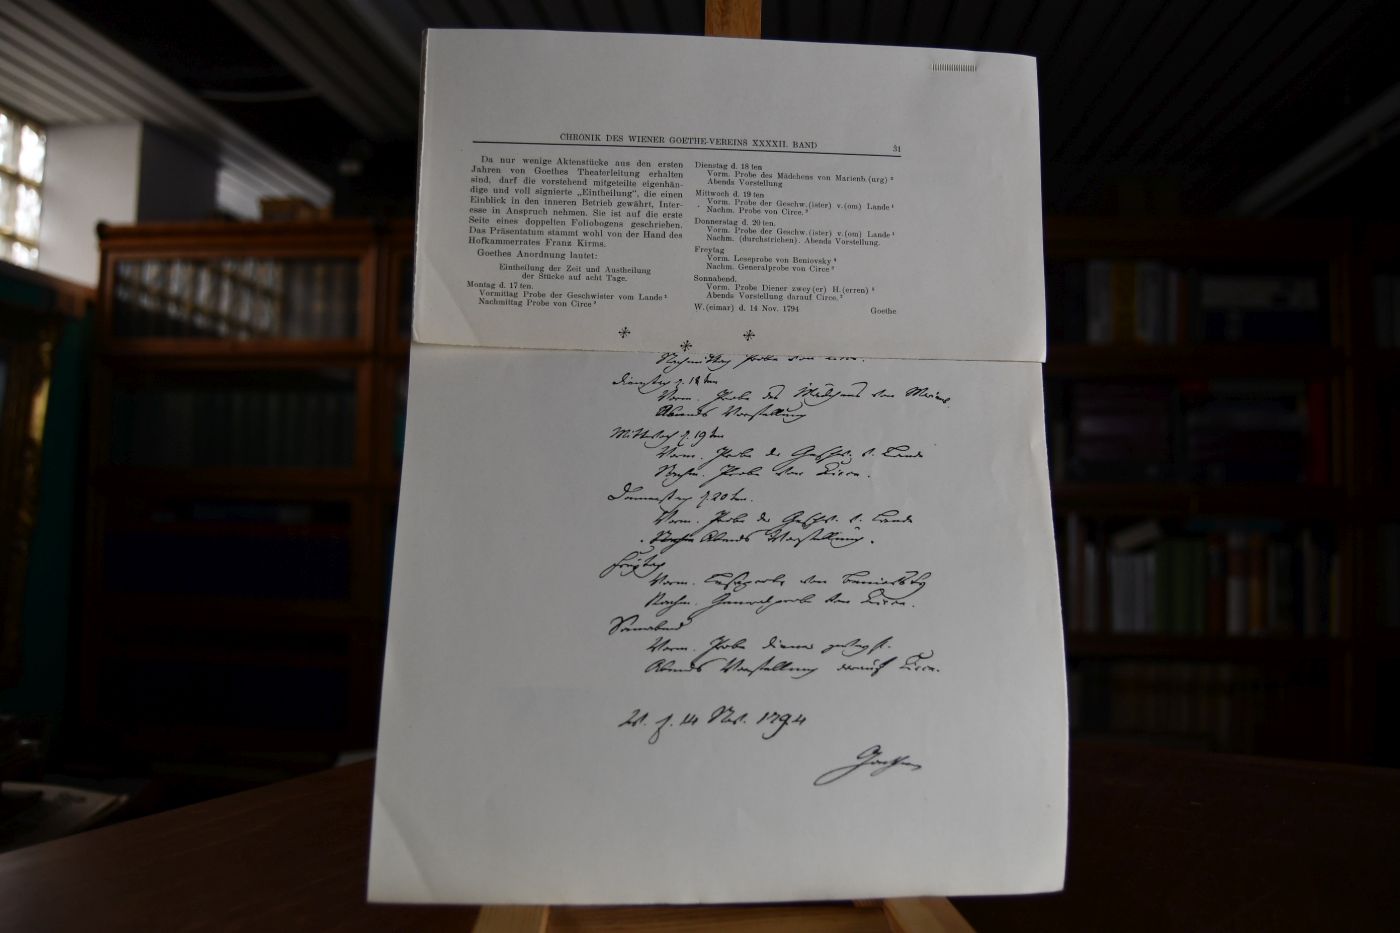 CHRONIK DES WIENER GOETHE-VEREINS XXXXII. BAND 31
Da nur wenige Aktenstücke aus den ersten
Jahren von Goethes Theaterleitung erhalten
sind, darf die vorstehend mitgeteilte eigenhän-
dige und voll signierte „Eintheilung“, die einen
Einblick in den inneren Betrieb gewährt, Inter-
esse in Anspruch nehmen. Sie ist auf die erste
Seite eines doppelten Foliobogens geschrieben.
Das Präsentatum stammt wohl von der Hand des
Hofkammerrates Franz Kirms.
Goethes Anordnung lautet:
Eintheilung der Zeit und Austheilung
der Stücke auf acht Tage.
Montag d. 17 ten.
Vormittag Probe der Geschwister vom Lande ¹
Nachmittag Probe von Circe ²
Dienstag d. 18 ten
Vorm. Probe des Mädchens von Marienb.(urg) ³
Abends Vorstellung
Mittwoch d. 19 ten
Vorm. Probe der Geschw.(ister) v.(om) Lande ¹
Nachm. Probe von Circe. ²
Donnerstag d. 20 ten.
Vorm. Probe der Geschw.(ister) v.(om) Lande ¹
Nachm. (durchstrichen). Abends Vorstellung.
Freytag
Vorm. Leseprobe von Beniovsky ⁴
Nachm. Generalprobe von Circe ²
Sonnabend.
Vorm. Probe Diener zwey(er) H.(erren) ⁵
Abends Vorstellung darauf Circe. ²
W.(eimar) d. 14 Nov. 1794 Goethe
Nachmittag Probe von Circe.
Dienstag d. 18 ten
Vorm. Probe des Mädchens von Marienb.
Abends Vorstellung
Mittwoch d. 19 ten
Vorm. Probe der Geschw. v. Lande
Nachm. Probe von Circe.
Donnerstag d. 20 ten.
Vorm. Probe der Geschw. v. Lande
Nachm Abends Vorstellung.
Freytag
Vorm. Leseprobe von Beniovsky
Nachm. Generalprobe von Circe.
Sonnabend
Vorm. Probe Diener zwey H.
Abends Vorstellung darauf Circe.
W. d. 14 Nov. 1794
Goethe